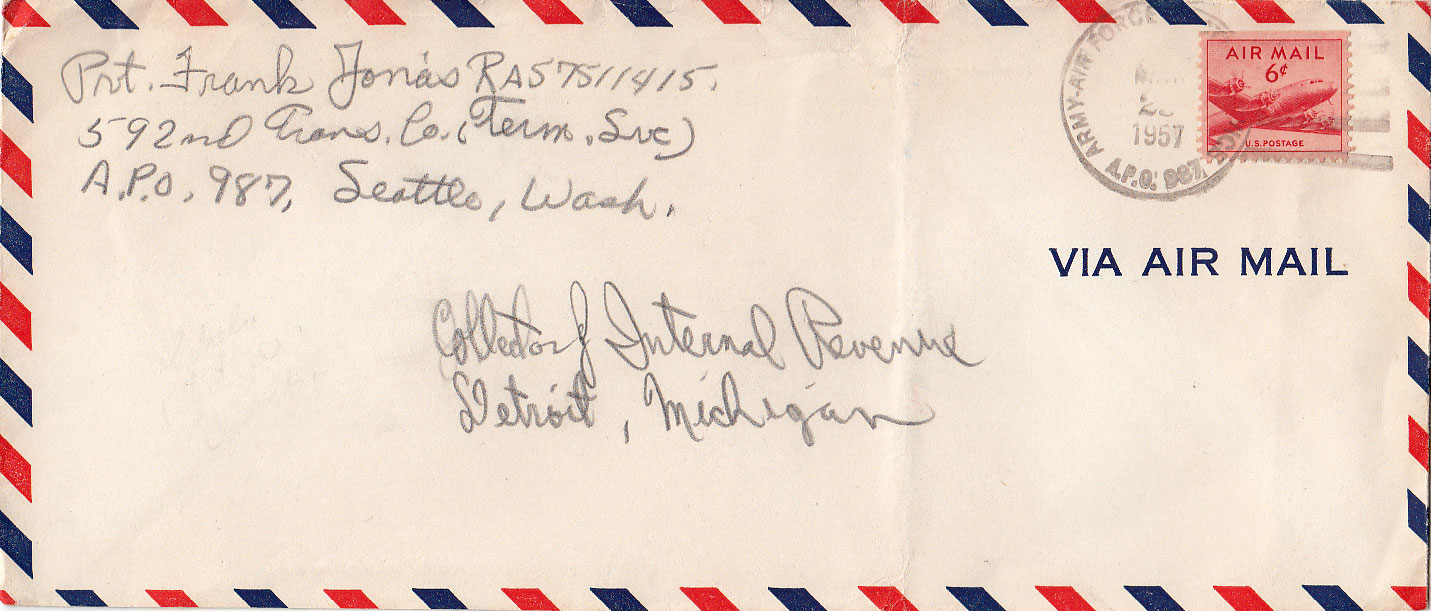 Pvt. Frank Jonas RA57511415.
592nd Trans. Co. (Term. Svc)
A.P.O. 987, Seattle, Wash.
ARMY-AIR FORCE
1957
A.P.O. 987
AIR MAIL
6¢
U.S. POSTAGE
VIA AIR MAIL
Collector of Internal Revenue
Detroit, Michigan